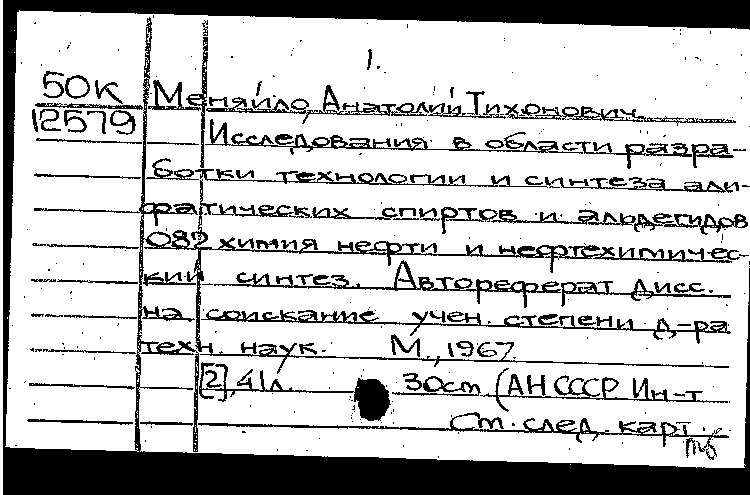 1.
50К Меняйло, Анатолий Тихонович.
12579 Исследования в области разра-
ботки технологии и синтеза али-
фатических спиртов и альдегидов
082 химия нефти и нефтехимичес-
кий синтез. Автореферат дисс.
на соискание учен. степени д-ра
техн. наук. М., 1967.
[2], 41л. 30см (АН СССР Ин-т
См. след. карт.